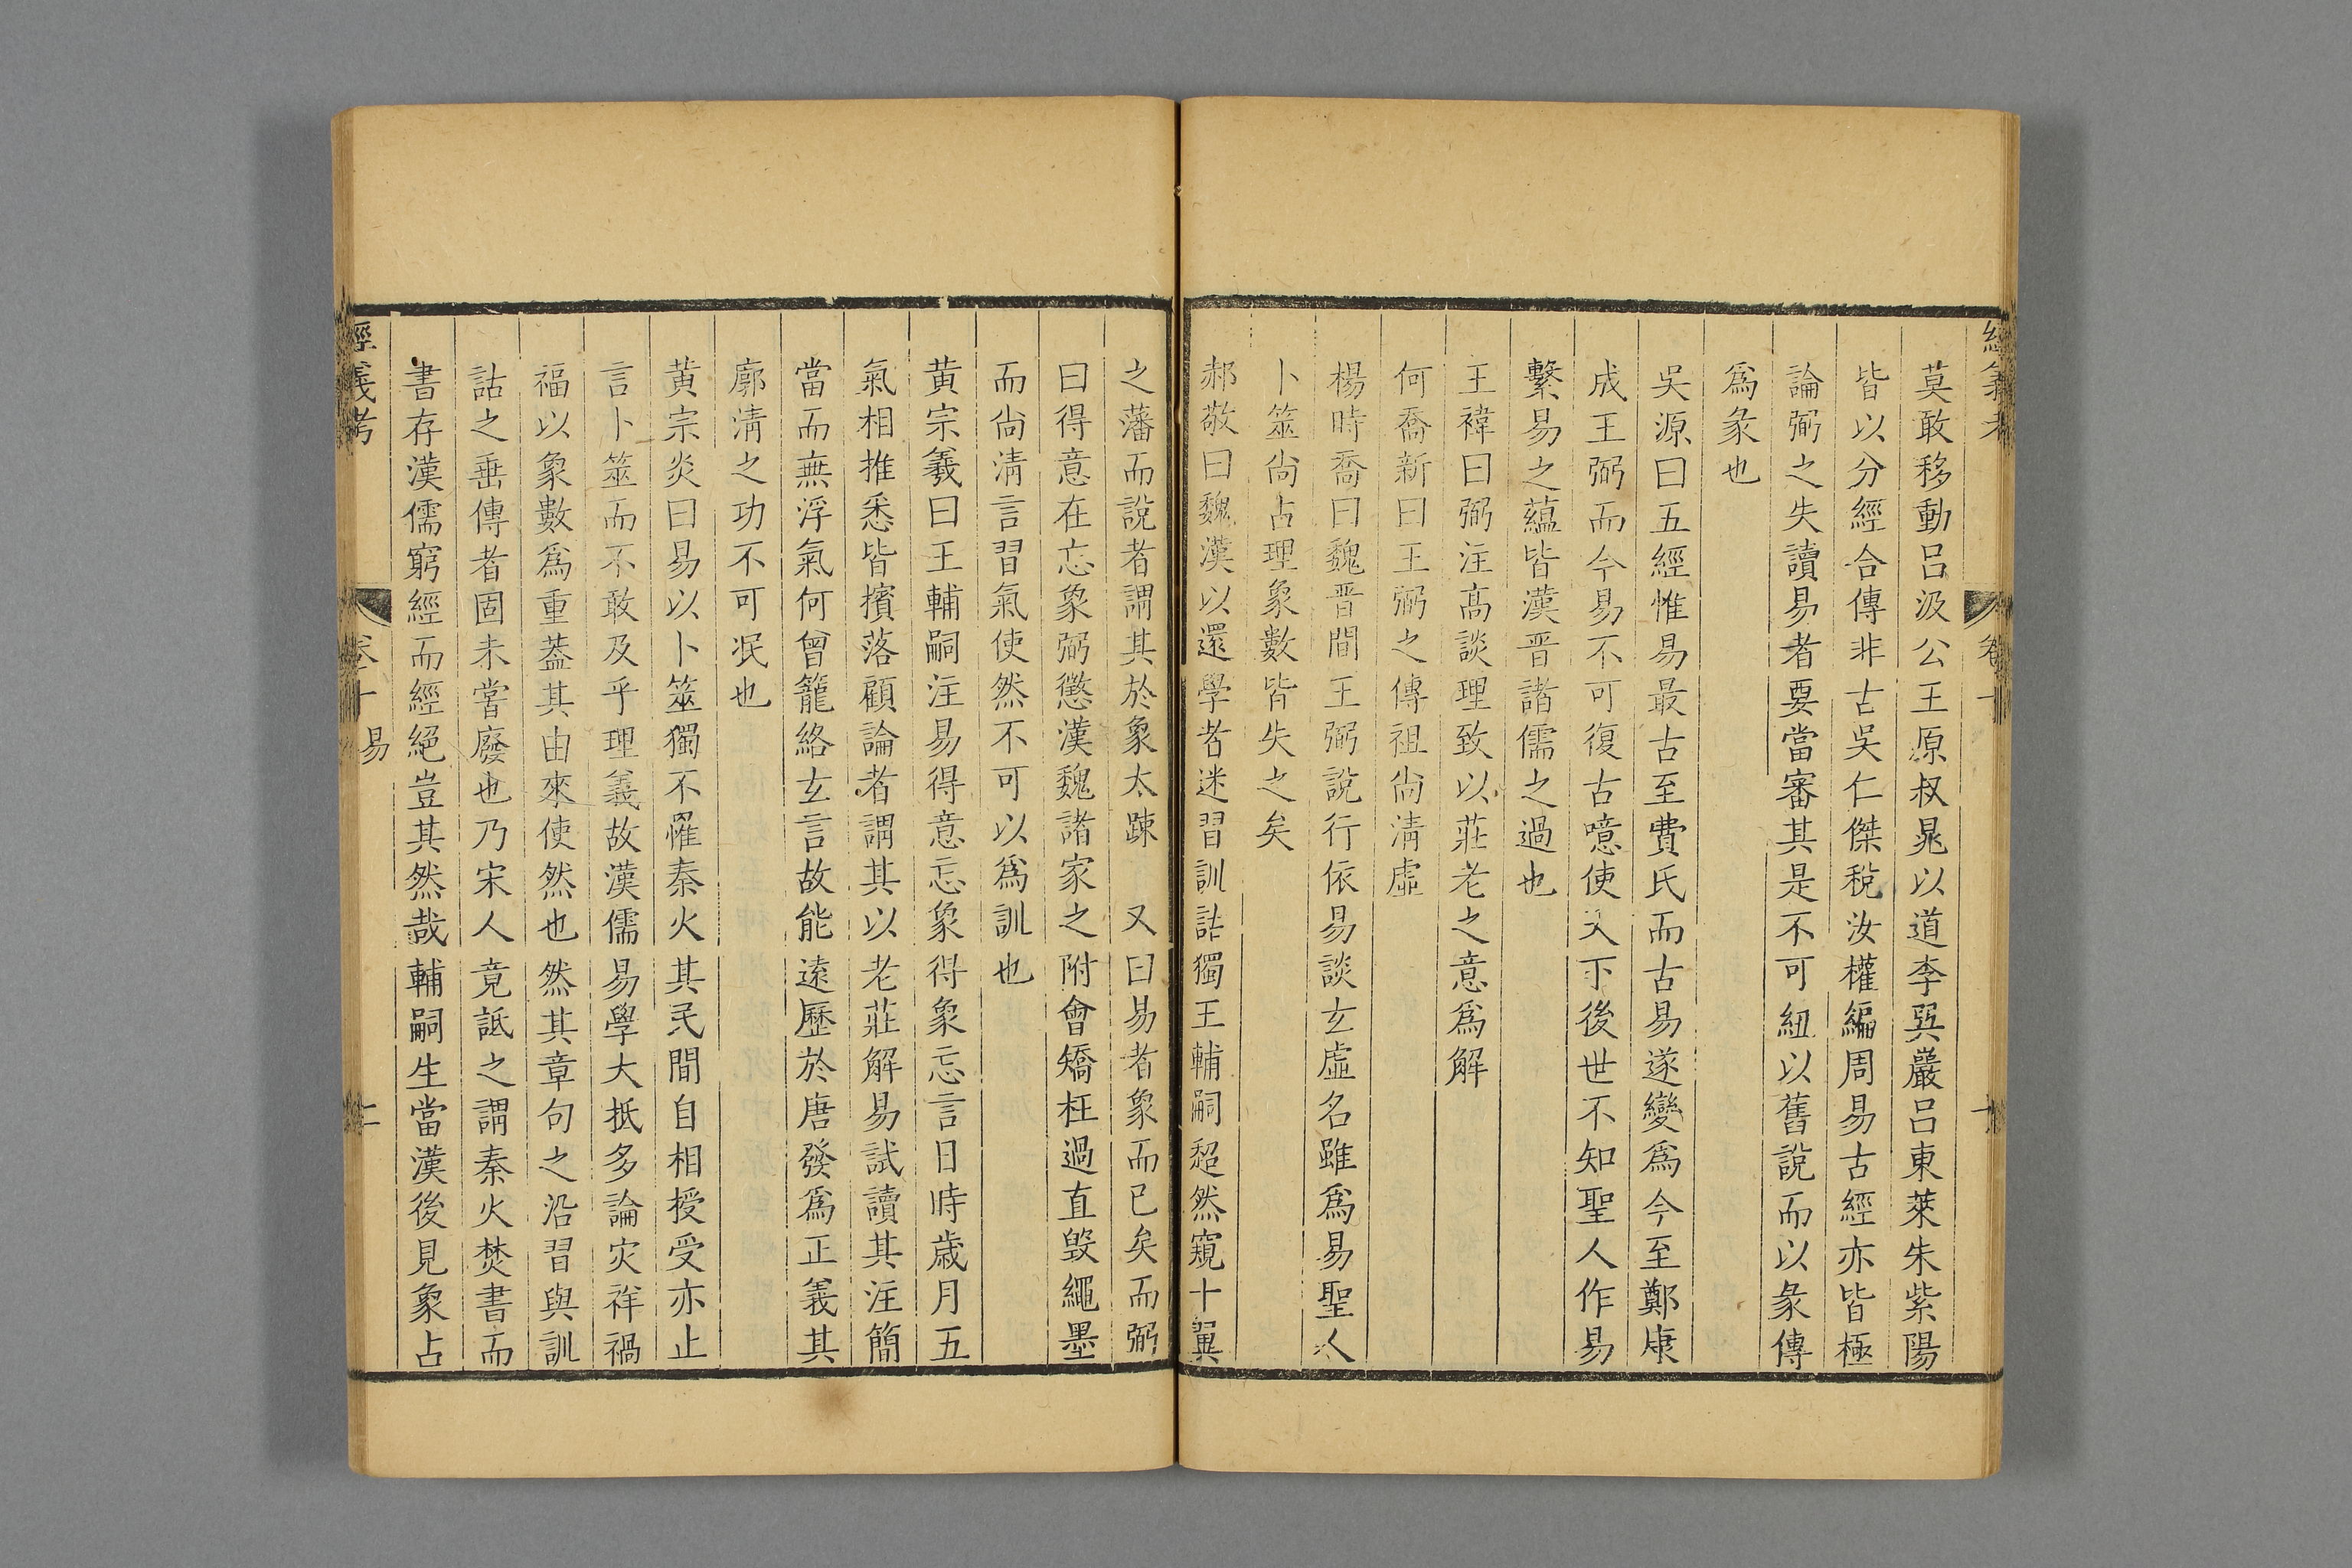 經義考
卷十
莫敢移動呂汲公王原叔晁以道李巽巖呂東萊朱紫陽
皆以分經合傳非古吳仁傑稅汝權編周易古經亦皆極
論弼之失讀易者要當審其是不可紐以舊說而以彖傳
爲彖也
吳源曰五經惟易最古至費氏而古易遂變爲今至鄭康
成王弼而今易不可復古噫使天下後世不知聖人作易
繫易之蘊皆漢晉諸儒之過也
王禕曰弼注高談理致以莊老之意爲解
何喬新曰王弼之傳祖尙淸虛
楊時喬曰魏晉間王弼說行依易談玄虛名雖爲易聖人
卜筮尙占理象數皆失之矣
郝敬曰魏漢以還學者迷習訓詁獨王輔嗣超然窺十翼
之藩而說者謂其於象太踈　又曰易者象而已矣而弼
曰得意在忘象弼懲漢魏諸家之附會矯枉過直毁繩墨
而尙淸言習氣使然不可以爲訓也
黃宗羲曰王輔嗣注易得意忘象得象忘言日時歲月五
氣相推悉皆擯落顧論者謂其以老莊解易試讀其注簡
當而無浮氣何曾籠絡玄言故能遠歷於唐發爲正義其
廓淸之功不可泯也
黃宗炎曰易以卜筮獨不罹秦火其民間自相授受亦止
言卜筮而不敢及乎理義故漢儒易學大抵多論灾祥禍
福以象數爲重蓋其由來使然也然其章句之沿習與訓
詁之垂傳者固未嘗廢也乃宋人竟詆之謂秦火焚書而
書存漢儒窮經而經絕豈其然哉輔嗣生當漢後見象占
經義考
卷十
易